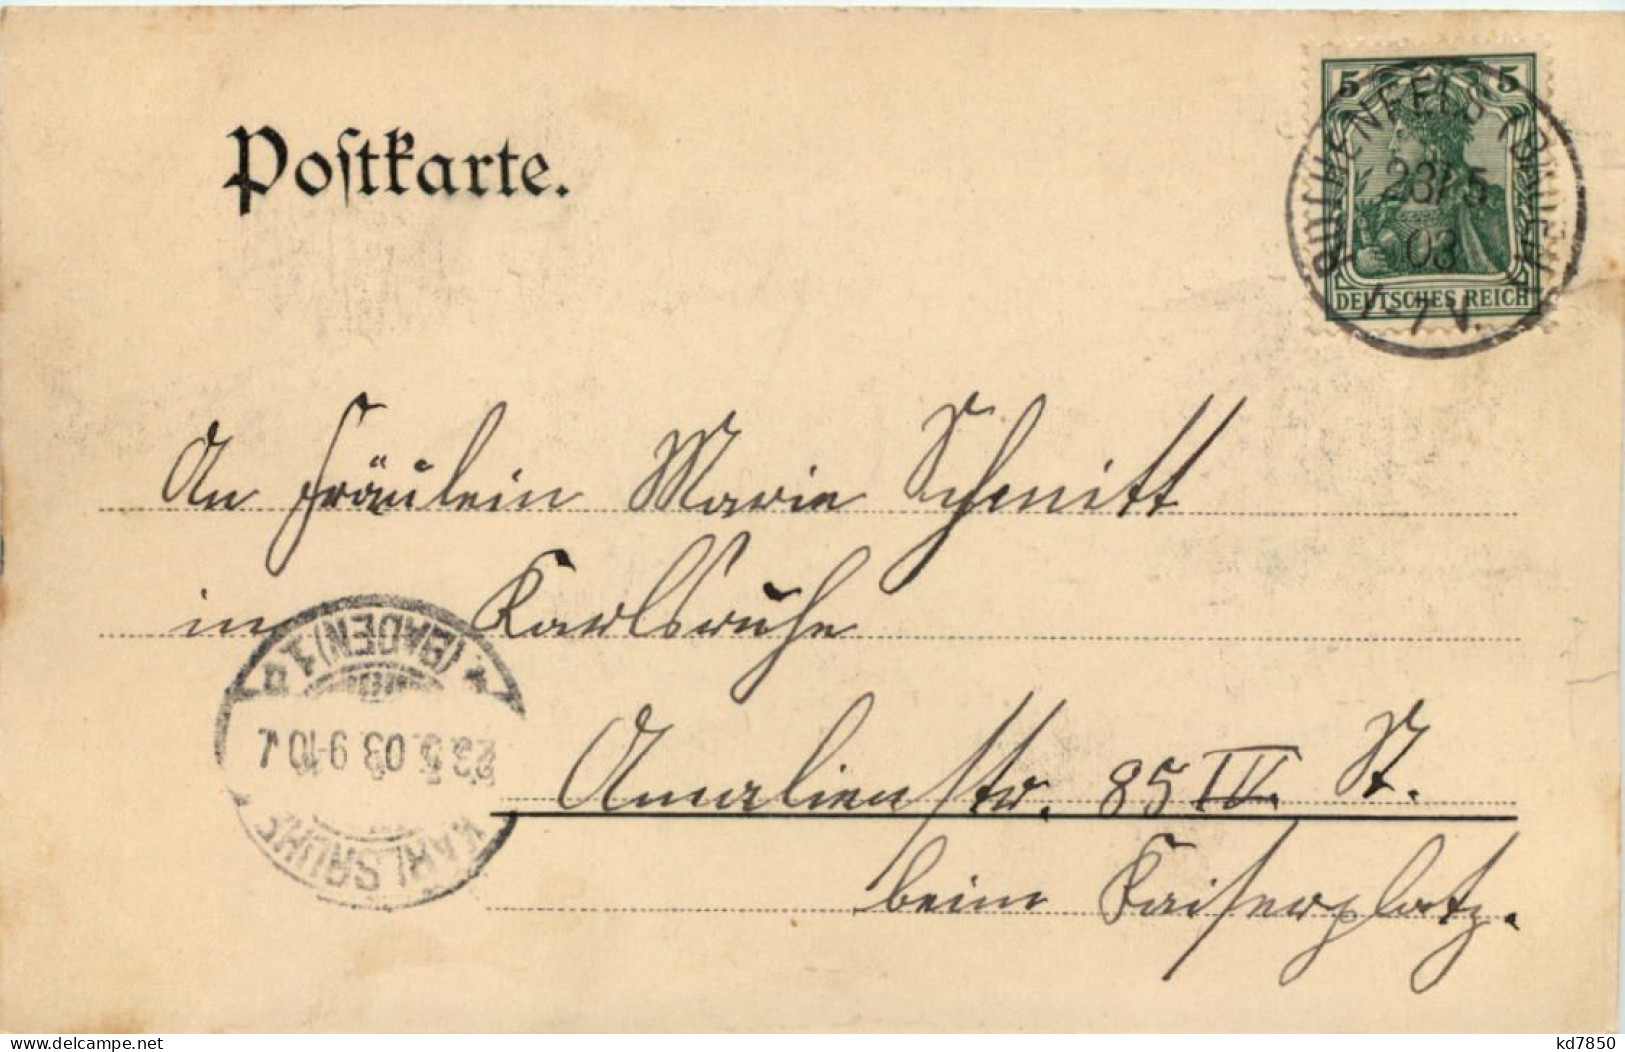 Postkarte.
5 5
ROTHENFELS (BADEN)
23/5
03
DEUTSCHES REICH
An Fräulein Marie Schmitt
in Karlsruhe
(BADEN) 1
23.5.03 9-10
KARLSRUHE
Amalienstr. 85 IV. St.
beim Kaiserplatz.
kd7850